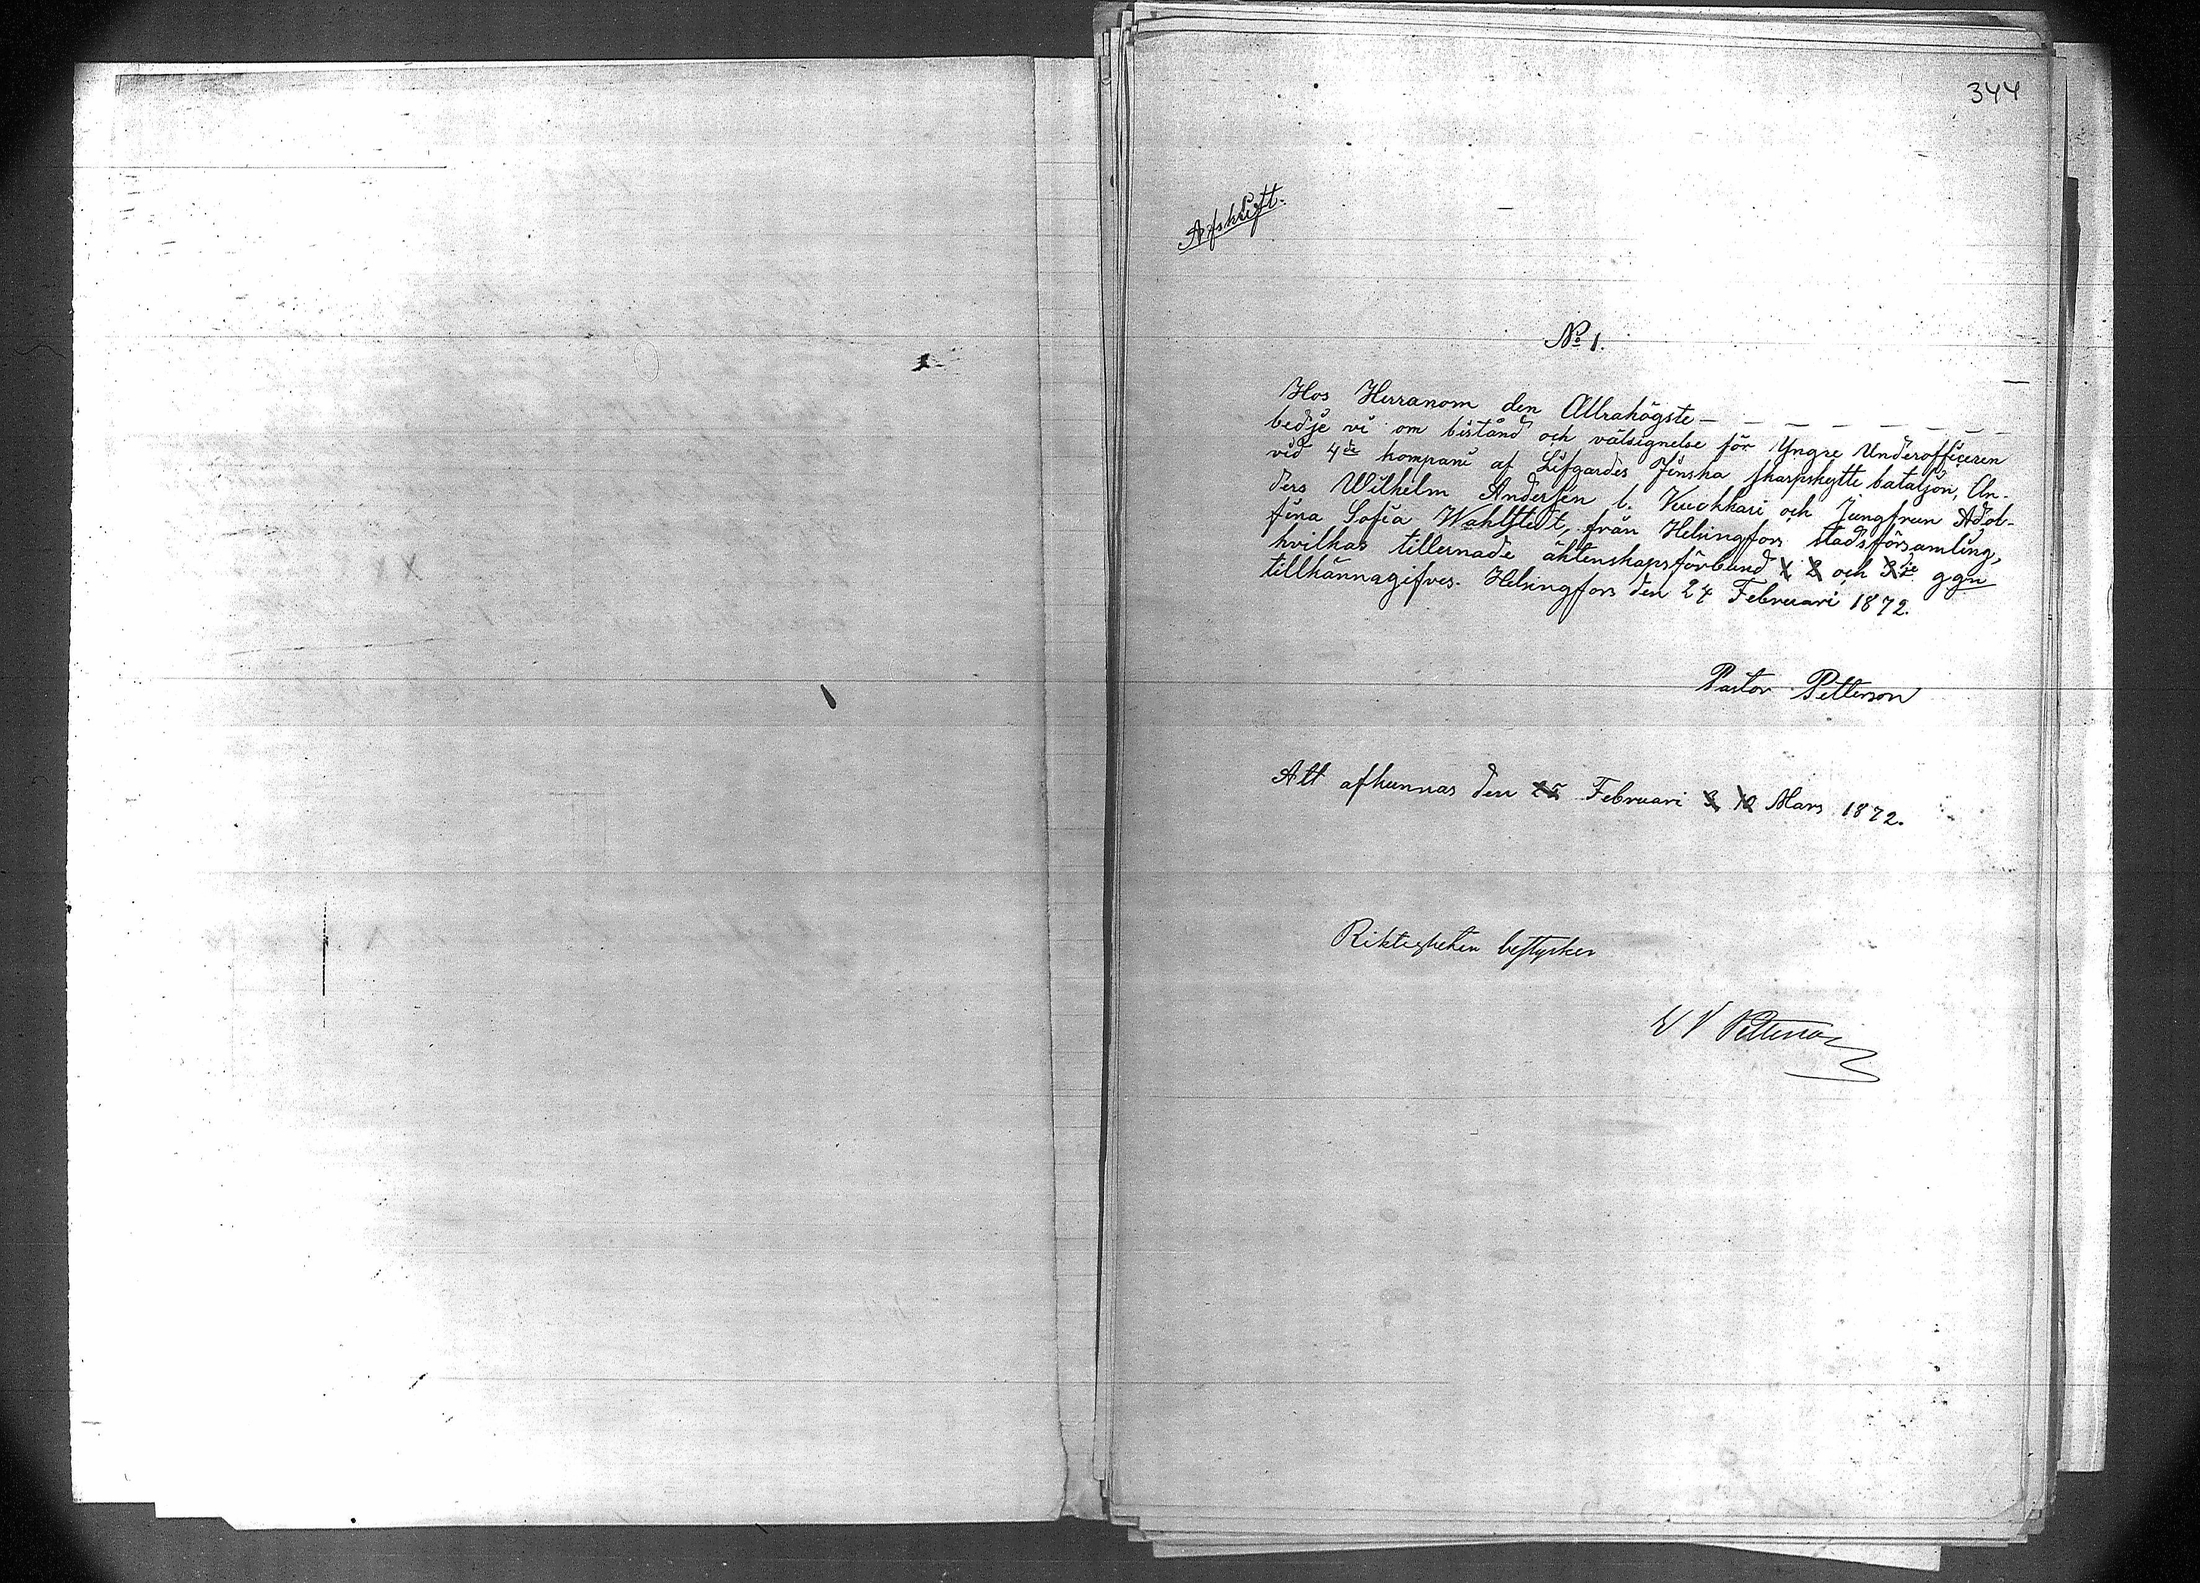 344
Afskrift.
No 1.
Hos Herranom den Allrahögste — — — — — — —
bedje vi om bistånd och välsignelse för Yngre Underofficeren
vid 4de kompani af Lifgardes Finska skarpskytte bataljon, An-
ders Wilhelm Andersén l. Kuckkari och Jungfrun Adol-
fina Sofia Wahlstedt, från Helsingfors stadsförsamling,
hvilkas tillernade äktenskapsförbund 1 2 och 3je ggn
tillkännagifves. Helsingfors den 24 Februari 1872.
Pastor Petterson
Att afkunnas den 25 Februari 3 10 Mars 1872.
Riktigheten bestyrker
W Petterson